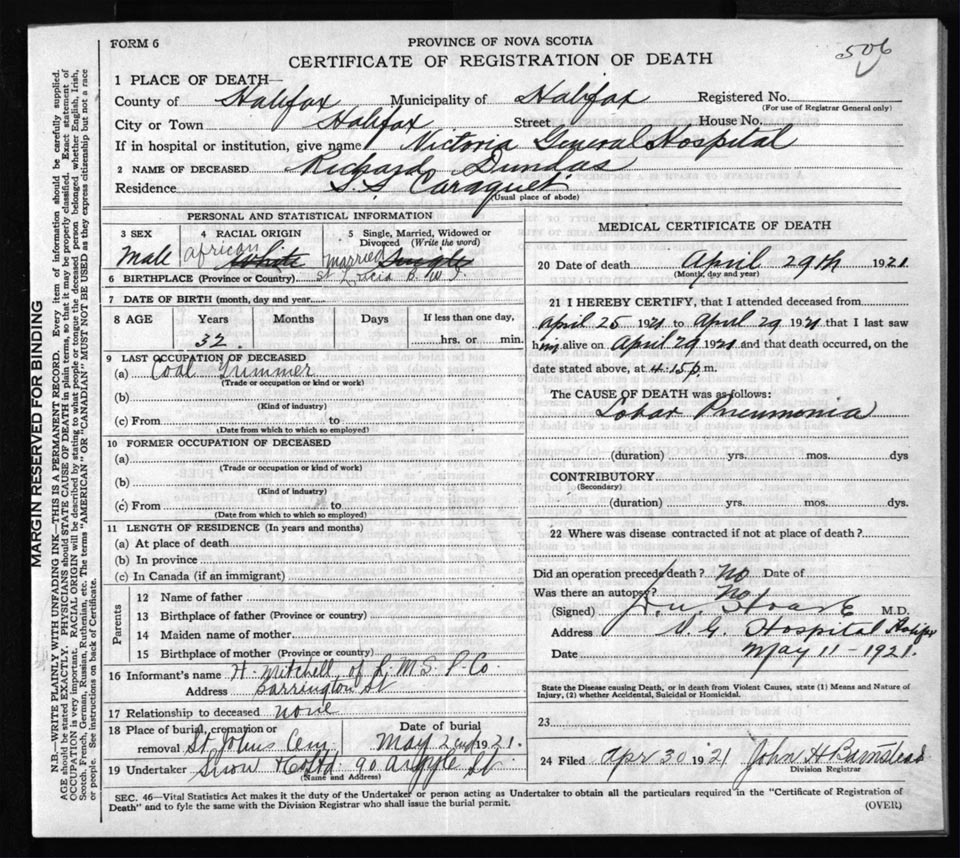 FORM 6
PROVINCE OF NOVA SCOTIA
CERTIFICATE OF REGISTRATION OF DEATH
506
1 PLACE OF DEATH—
County of Halifax Municipality of Halifax Registered No.
(For use of Registrar General only)
City or Town Halifax Street House No.
If in hospital or institution, give name Victoria General Hospital
2 NAME OF DECEASED Richard Dundas
Residence S.S. Caraquet
(Usual place of abode)
PERSONAL AND STATISTICAL INFORMATION
3 SEX 4 RACIAL ORIGIN 5 Single, Married, Widowed or Divorced (Write the word)
Male African White Married Single
6 BIRTHPLACE (Province or Country) St Lucia B.W.I.
7 DATE OF BIRTH (month, day and year)
8 AGE Years Months Days If less than one day,
32 hrs. or min.
9 LAST OCCUPATION OF DECEASED
(a) Coal Trimmer
(Trade or occupation or kind or work)
(b)
(Kind of industry)
(c) From to
(Date from which to which so employed)
10 FORMER OCCUPATION OF DECEASED
(a)
(Trade or occupation or kind of work)
(b)
(Kind of industry)
(c) From to
(Date from which to which so employed)
11 LENGTH OF RESIDENCE (In years and months)
(a) At place of death
(b) In province
(c) In Canada (if an immigrant)
Parents
12 Name of father
13 Birthplace of father (Province or country)
14 Maiden name of mother
15 Birthplace of mother (Province or country)
16 Informant's name H. Mitchell of R.M.S.P. Co.
Address Barrington St
17 Relationship to deceased none
18 Place of burial, cremation or removal St Johns Cem Date of burial May 2nd 1921.
19 Undertaker Snow & Co Ltd. 90 Argyle St.
(Name and Address)
MEDICAL CERTIFICATE OF DEATH
20 Date of death April 29th 1921
(Month, day and year)
21 I HEREBY CERTIFY, that I attended deceased from
April 25 1921 to April 29 1921 that I last saw
him alive on April 29 1921 and that death occurred, on the
date stated above, at 4.15 p.m.
The CAUSE OF DEATH was as follows:
Lobar Pneumonia
(duration) yrs. mos. dys
CONTRIBUTORY
(Secondary)
(duration) yrs. mos. dys.
22 Where was disease contracted if not at place of death?
Did an operation precede death? No Date of
Was there an autopsy? No
(Signed) M.D.
Address V.G. Hospital Halifax
Date May 11 - 1921.
State the Disease causing Death, or in death from Violent Causes, state (1) Means and Nature of
Injury, (2) whether Accidental, Suicidal or Homicidal.
23
24 Filed Apr 30 1921 John H Barnstead
Division Registrar
SEC. 46—Vital Statistics Act makes it the duty of the Undertaker or person acting as Undertaker to obtain all the particulars required in the "Certificate of Registration of
Death" and to fyle the same with the Division Registrar who shall issue the burial permit.
(OVER)
MARGIN RESERVED FOR BINDING
N.B.—WRITE PLAINLY WITH UNFADING INK—THIS IS A PERMANENT RECORD. Every item of information should be carefully supplied.
AGE should be stated EXACTLY. PHYSICIANS should STATE CAUSE OF DEATH in plain terms, so that it may be properly classified. Exact statement of
OCCUPATION is very important. RACIAL ORIGIN will be described by stating to what people or tongue the deceased person belonged, whether English, Irish,
Scotch, French, German, Russian, Ruthenian, etc. The terms "AMERICAN" OR "CANADIAN" MUST NOT BE USED as they express citizenship but not a race
or people. See instructions on back of Certificate.